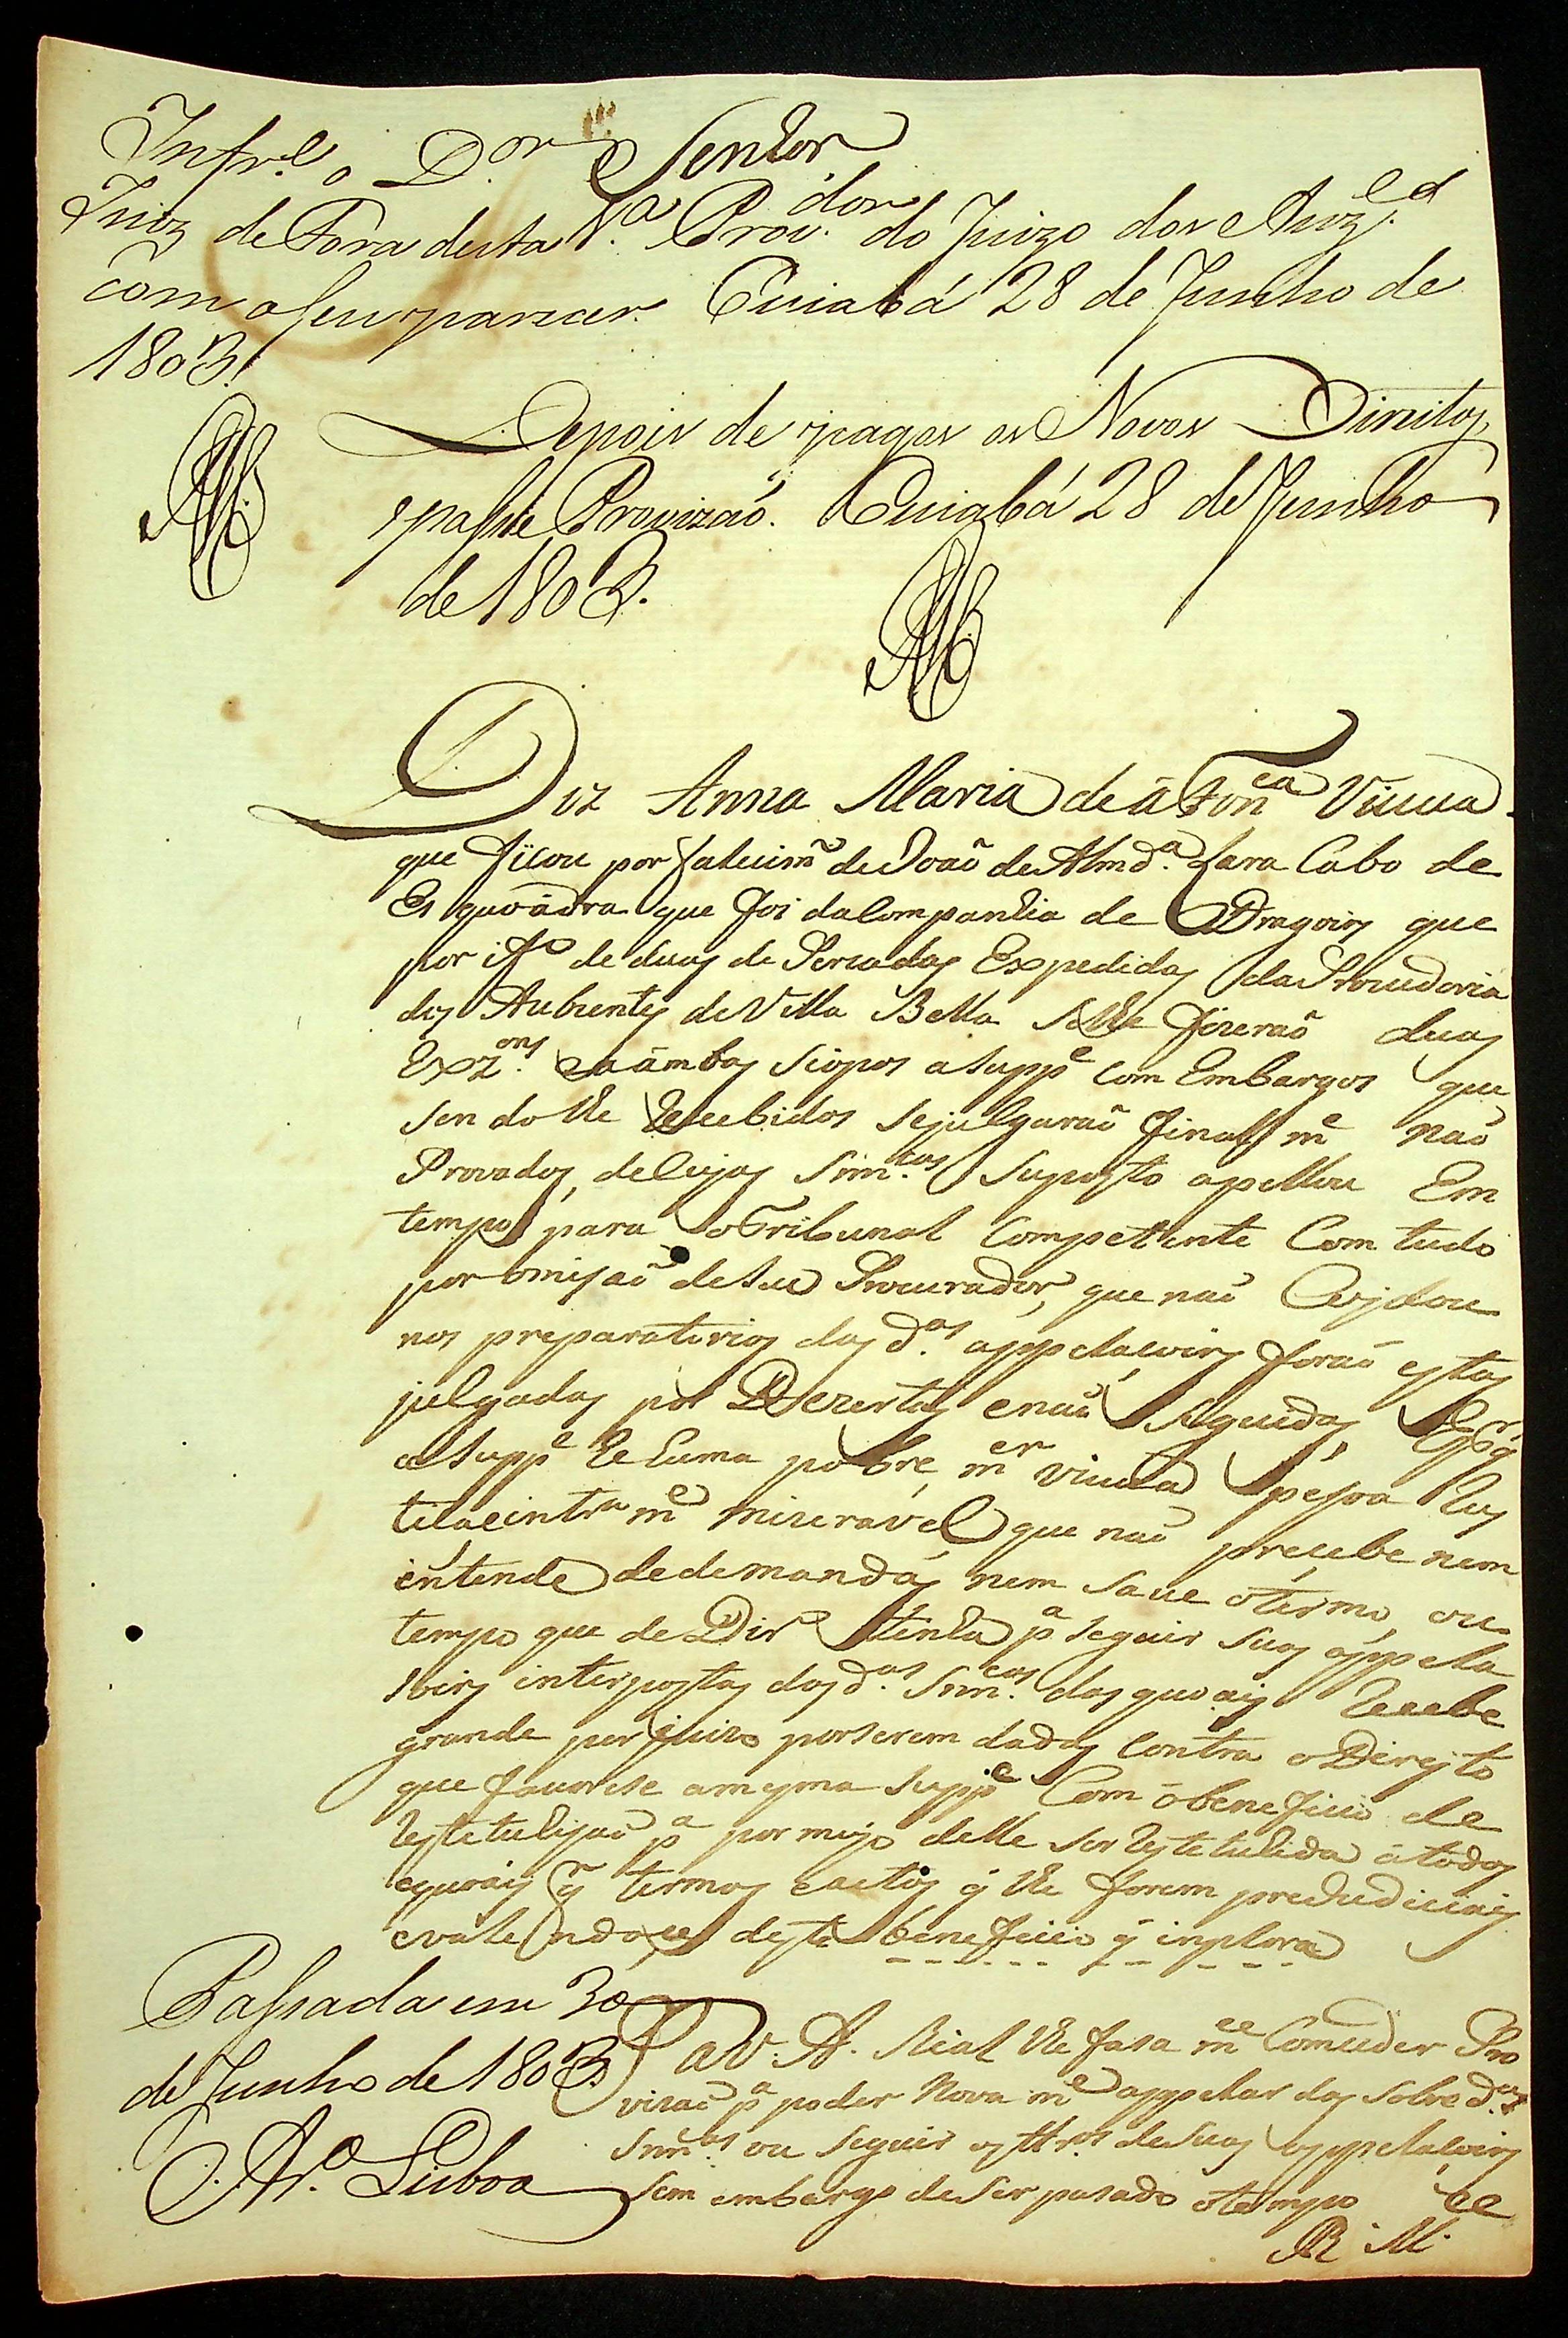 Infr.e o D.or Senhor
Juiz de Fora desta V.a Prov.dor do Juizo dos Auz.es
com o seu parecer. Cuiabá 28 de Junho de
1803.
Depois de pagos os Novos Direitos,
passhe Provizaó. Cuiabá 28 de Junho
de 1803.
Diz Anna Maria de a Fonca Viuua
que ficou por falecimto de Joaõ de Almd.a Lara Cabo de
Esquoadra que foi da Companhia de Dragois que
por de duas de Percadas Expedidas da Prouedoria
dos Auzentes de Villa Bella se lhe fizeraõ duas
Exz.ons e a ambas se opos a suppe com Embargos que
sendo lhe Recebidos se julgaraõ final me naõ
Provados, de Cujas Sinn.cas suposto apellou Em
tempo para o Tribunal Competente Com tudo
por omisaõ de seu Procurador, que naõ Cujdou
nos preparatorios das d.as appelasois foraõ estas
julgadas por Dezertas e naõ siguidas E
a suppe he huma pobre mer viuua pesoa Rus
tica e intra me miseravel que naõ precebe nem
entende de demandas nem saue o termo ou
tempo que de Dir.o tenha pa seguir suas appela
sois interpostas das d.as Sinn.cas das quoais Recebe
grande perjuizo por serem dadas Contra o Direjto
que favorese a mesma Suppe Com o beneficio de
Restetuhisaõ pa por mejo delle ser Restetuhida a todos
equoais qr termos e actos q̃ lhe forem predudiciais
e valendo se deste beneficio q̃ inplora
P a V. A. Rial lhe fasa mce Comseder Pro
visaõ pa poder Nova me appelar das sobre d.as
Sinn.cas ou seguir os tr.os de suas appelasois
sem embargo de ser pasado o tempo
E R M.
Passada em 30
de Junho de 1803.
Lisboa